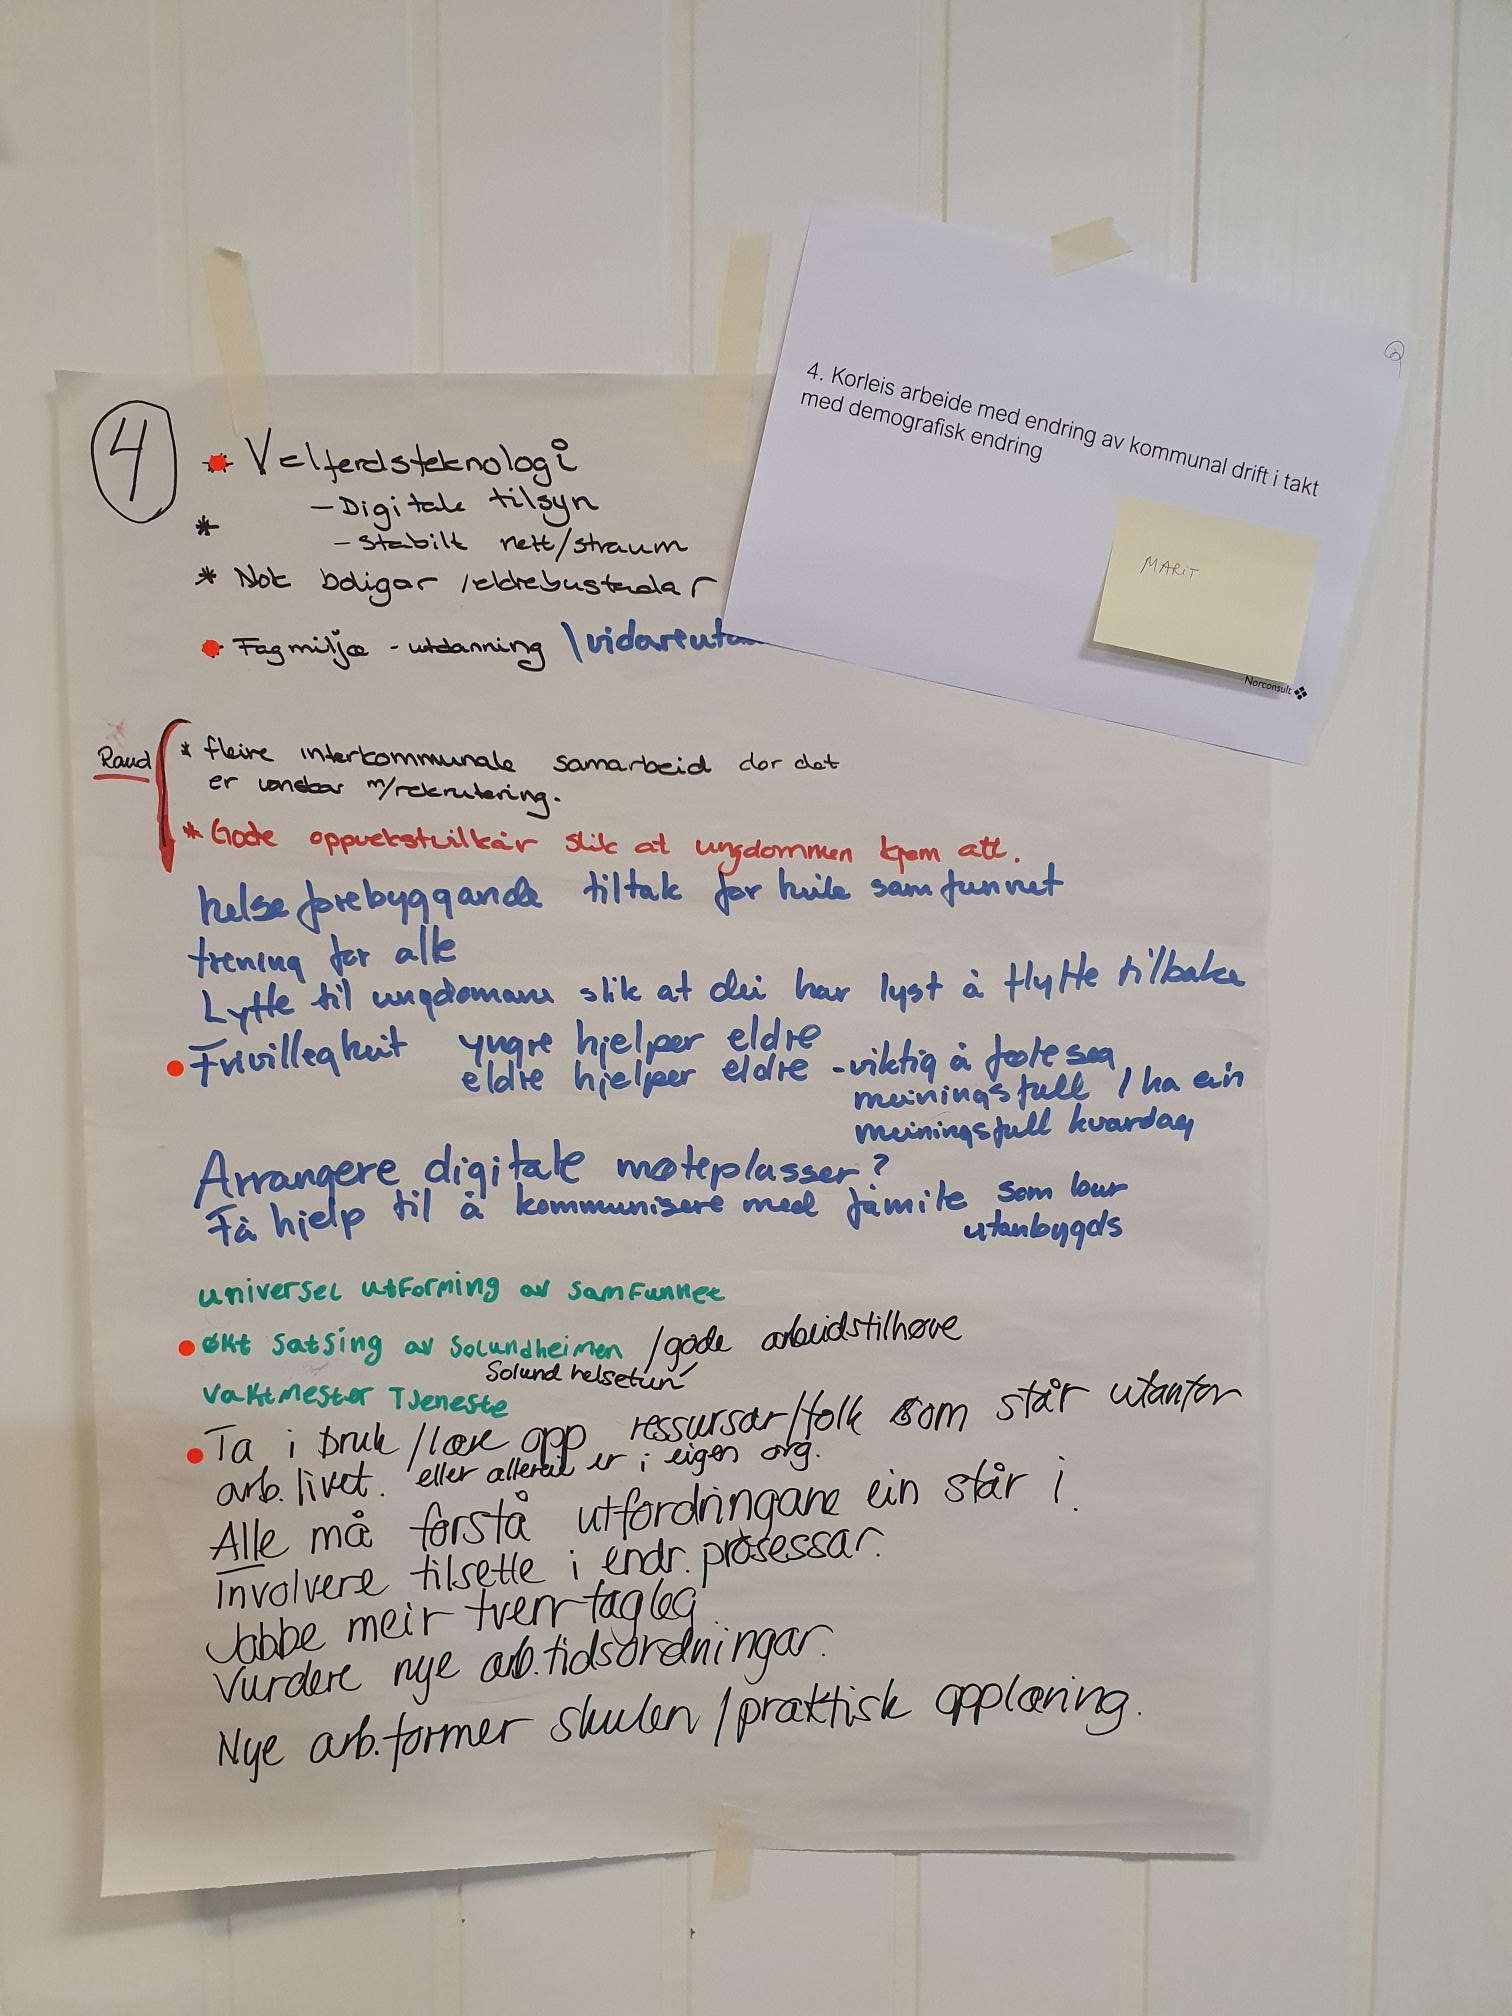 4. Korleis arbeide med endring av kommunal drift i takt
med demografisk endring
MARIT
Norconsult
4
Velferdsteknologi
- Digitale tilsyn
*
- Stabilt nett/straum
* Nok boligar /eldrebustadar
Fagmiljø - utdanning /vidareut
Raud
* fleire interkommunale samarbeid der det
er vanskar m/rekrutering.
* Gode oppvekstvilkår slik at ungdommen kjem att.
helseforebyggande tiltak for heile samfunnet
trening for alle
Lytte til ungdomane slik at dei har lyst å flytte tilbake
Frivillegheit yngre hjelper eldre
eldre hjelper eldre - viktig å føle seg
meiningsfull / ha ein
meiningsfull kvardag
Arrangere digitale møteplasser?
Få hjelp til å kommunisere med familie som bur
utanbygds
universel utforming av samfunnet
økt satsing av Solundheimen /gode arbeidstilhøve
Solund helsetun
Vaktmester Tjeneste
Ta i bruk /lære opp ressursar/folk som står utanfor
arb.livet. eller allereie er i eigen org.
Alle må forstå utfordringane ein står i.
Involvere tilsette i endr. prosessar.
Jobbe meir tverrfagleg
Vurdere nye arb.tidsordningar.
Nye arb.former skulen /praktisk opplæring.